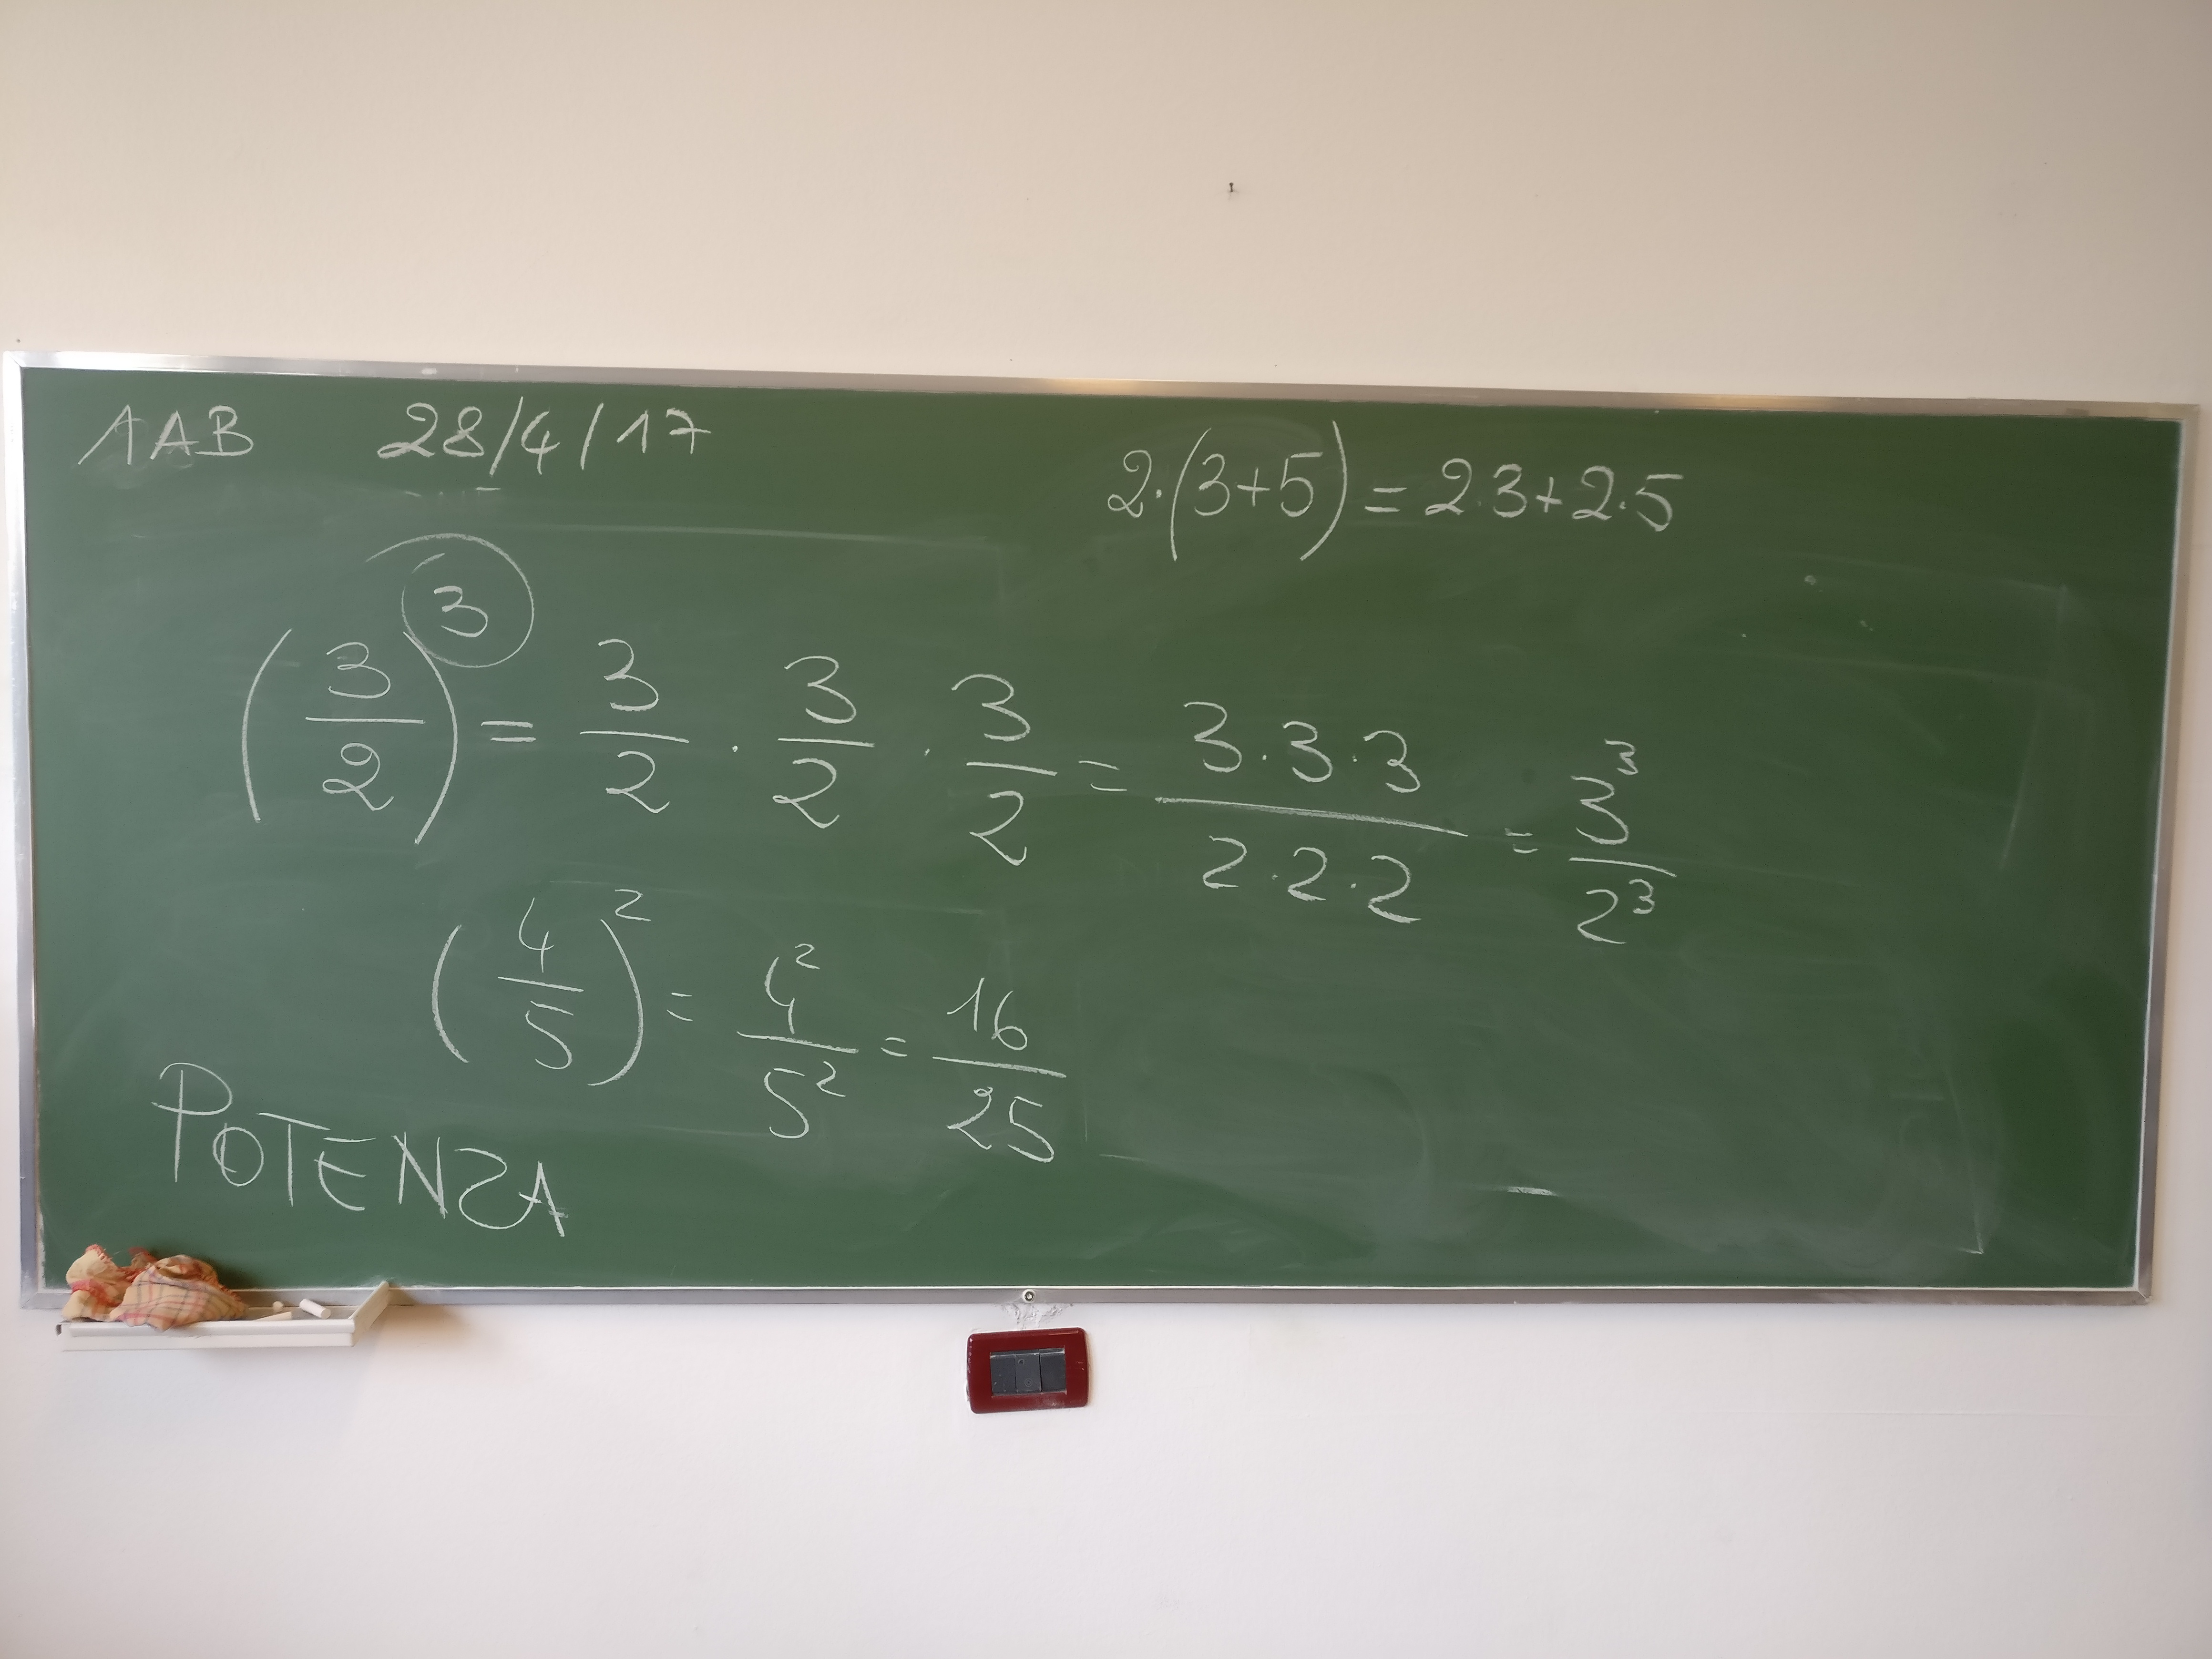 AAB 28/4/17
2·(3+5) = 2·3+2·5
(3/2)³ = 3/2 · 3/2 · 3/2 = 3·3·3/2·2·2 = 3³/2³
(4/5)² = 4²/5² = 16/25
POTENZA